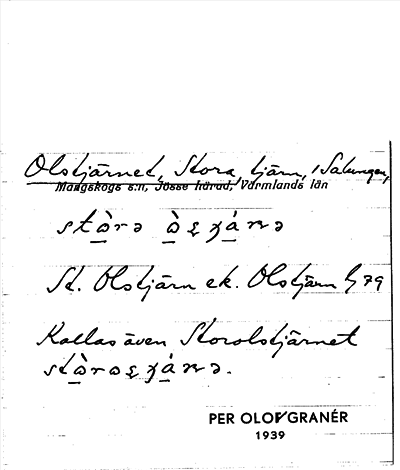 Olstjärnet, Stora, tjärn, i Salungen,
Mangskogs s:n, Jösse härad, Värmlands län
St. Olstjärn ek. Olstjärn G 79
Kallas även Storolstjärnet
PER OLOF GRANÉR
1939